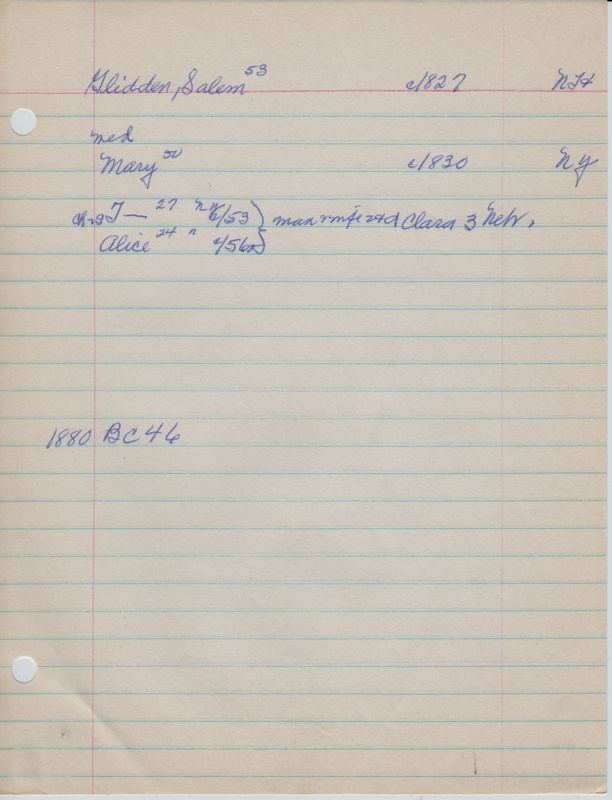 Glidden, Salem 53 c1827 NH
med
Mary 50 c1830 NY
ch-s J— 27 NY c/53) man & wife 24 d Clara 3 Nebr.
Alice 24 " c/56)
1880 BC 46